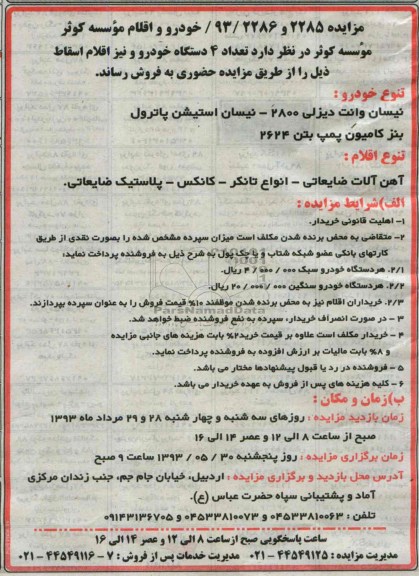 مزایده ۲۲۸۵ و ۲۲۸۶ /۹۳ / خودرو و اقلام مؤسسه کوثر
مؤسسه کوثر در نظر دارد تعداد ۴ دستگاه خودرو و نیز اقلام اسقاط
ذیل را از طریق مزایده حضوری به فروش رساند.
تنوع خودرو :
نیسان وانت دیزلی ۲۸۰۰ - نیسان استیشن پاترول
بنز کامیون پمپ بتن ۲۶۲۴
تنوع اقلام :
آهن آلات ضایعاتی - انواع تانکر - کانکس - پلاستیک ضایعاتی.
الف)شرایط مزایده :
۱- اهلیت قانونی خریدار.
۲- متقاضی به محض برنده شدن مکلف است میزان سپرده مشخص شده را بصورت نقدی از طریق
کارتهای بانکی عضو شبکه شتاب و یا چک پول به شرح ذیل به فروشنده پرداخت نماید:
۲/۱. هردستگاه خودرو سبک ۰۰۰ / ۰۰۰ / ۴ ریال.
۲/۲. هردستگاه خودرو سنگین ۰۰۰ / ۰۰۰ / ۲۰ ریال.
۲/۳. خریداران اقلام نیز به محض برنده شدن موظفند ۱۰% قیمت فروش را به عنوان سپرده بپردازند.
۳ - در صورت انصراف خریدار، سپرده به نفع فروشنده ضبط خواهد شد.
۴ - خریدار مکلف است علاوه بر قیمت خرید ۲% بابت هزینه های جانبی مزایده
و ۸% بابت مالیات بر ارزش افزوده به فروشنده پرداخت نماید.
۵ - فروشنده در رد یا قبول پیشنهادها مختار می باشد.
۶ - کلیه هزینه های پس از فروش به عهده خریدار می باشد.
ب)زمان و مکان :
زمان بازدید مزایده : روزهای سه شنبه و چهار شنبه ۲۸ و ۲۹ مرداد ماه ۱۳۹۳
صبح از ساعت ۸ الی ۱۲ و عصر ۱۴ الی ۱۶
زمان برگزاری مزایده : روز پنجشنبه ۳۰ / ۰۵ / ۱۳۹۳ ساعت ۹ صبح
آدرس محل بازدید و برگزاری مزایده : اردبیل، خیابان جام جم، جنب زندان مرکزی
آماد و پشتیبانی سپاه حضرت عباس (ع).
تلفن : ۰۴۵۳۳۸۱۰۰۶۳ و ۰۴۵۳۳۸۱۰۰۷۳ و ۰۹۱۴۳۱۳۶۷۰۵
ساعت پاسخگویی صبح از ساعت ۸ الی ۱۲ و عصر ۱۴ الی ۱۶
مدیریت مزایده : ۴۴۵۴۹۱۲۵ - ۰۲۱ مدیریت خدمات پس از فروش : ۷ - ۴۴۵۴۹۱۱۶ - ۰۲۱
ParsNamadData